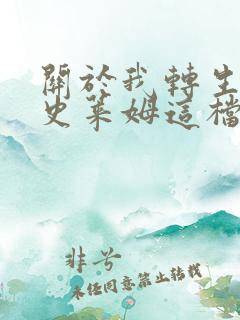 關於我轉生
史萊姆這檔
非兮
未經同意禁止轉載